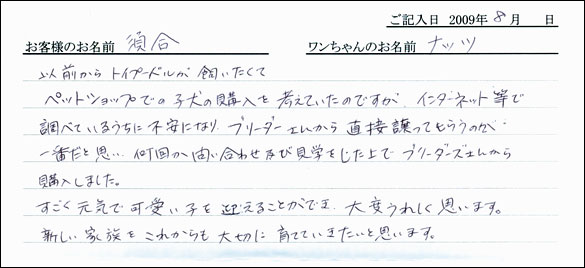 ご記入日 2009年 8月 日
お客様のお名前 須合 ワンちゃんのお名前 ナッツ
以前からトイプードルが飼いたくて
ペットショップでの子犬の購入を考えていたのですが、インターネット等で
調べているうちに不安になり、ブリーダーさんから直接譲ってもらうのが
一番だと思い、何回か問い合わせ及び見学をした上でブリーダーズさんから
購入しました。
すごく元気で可愛い子を迎えることができ、大変うれしく思います。
新しい家族をこれからも大切に育てていきたいと思います。